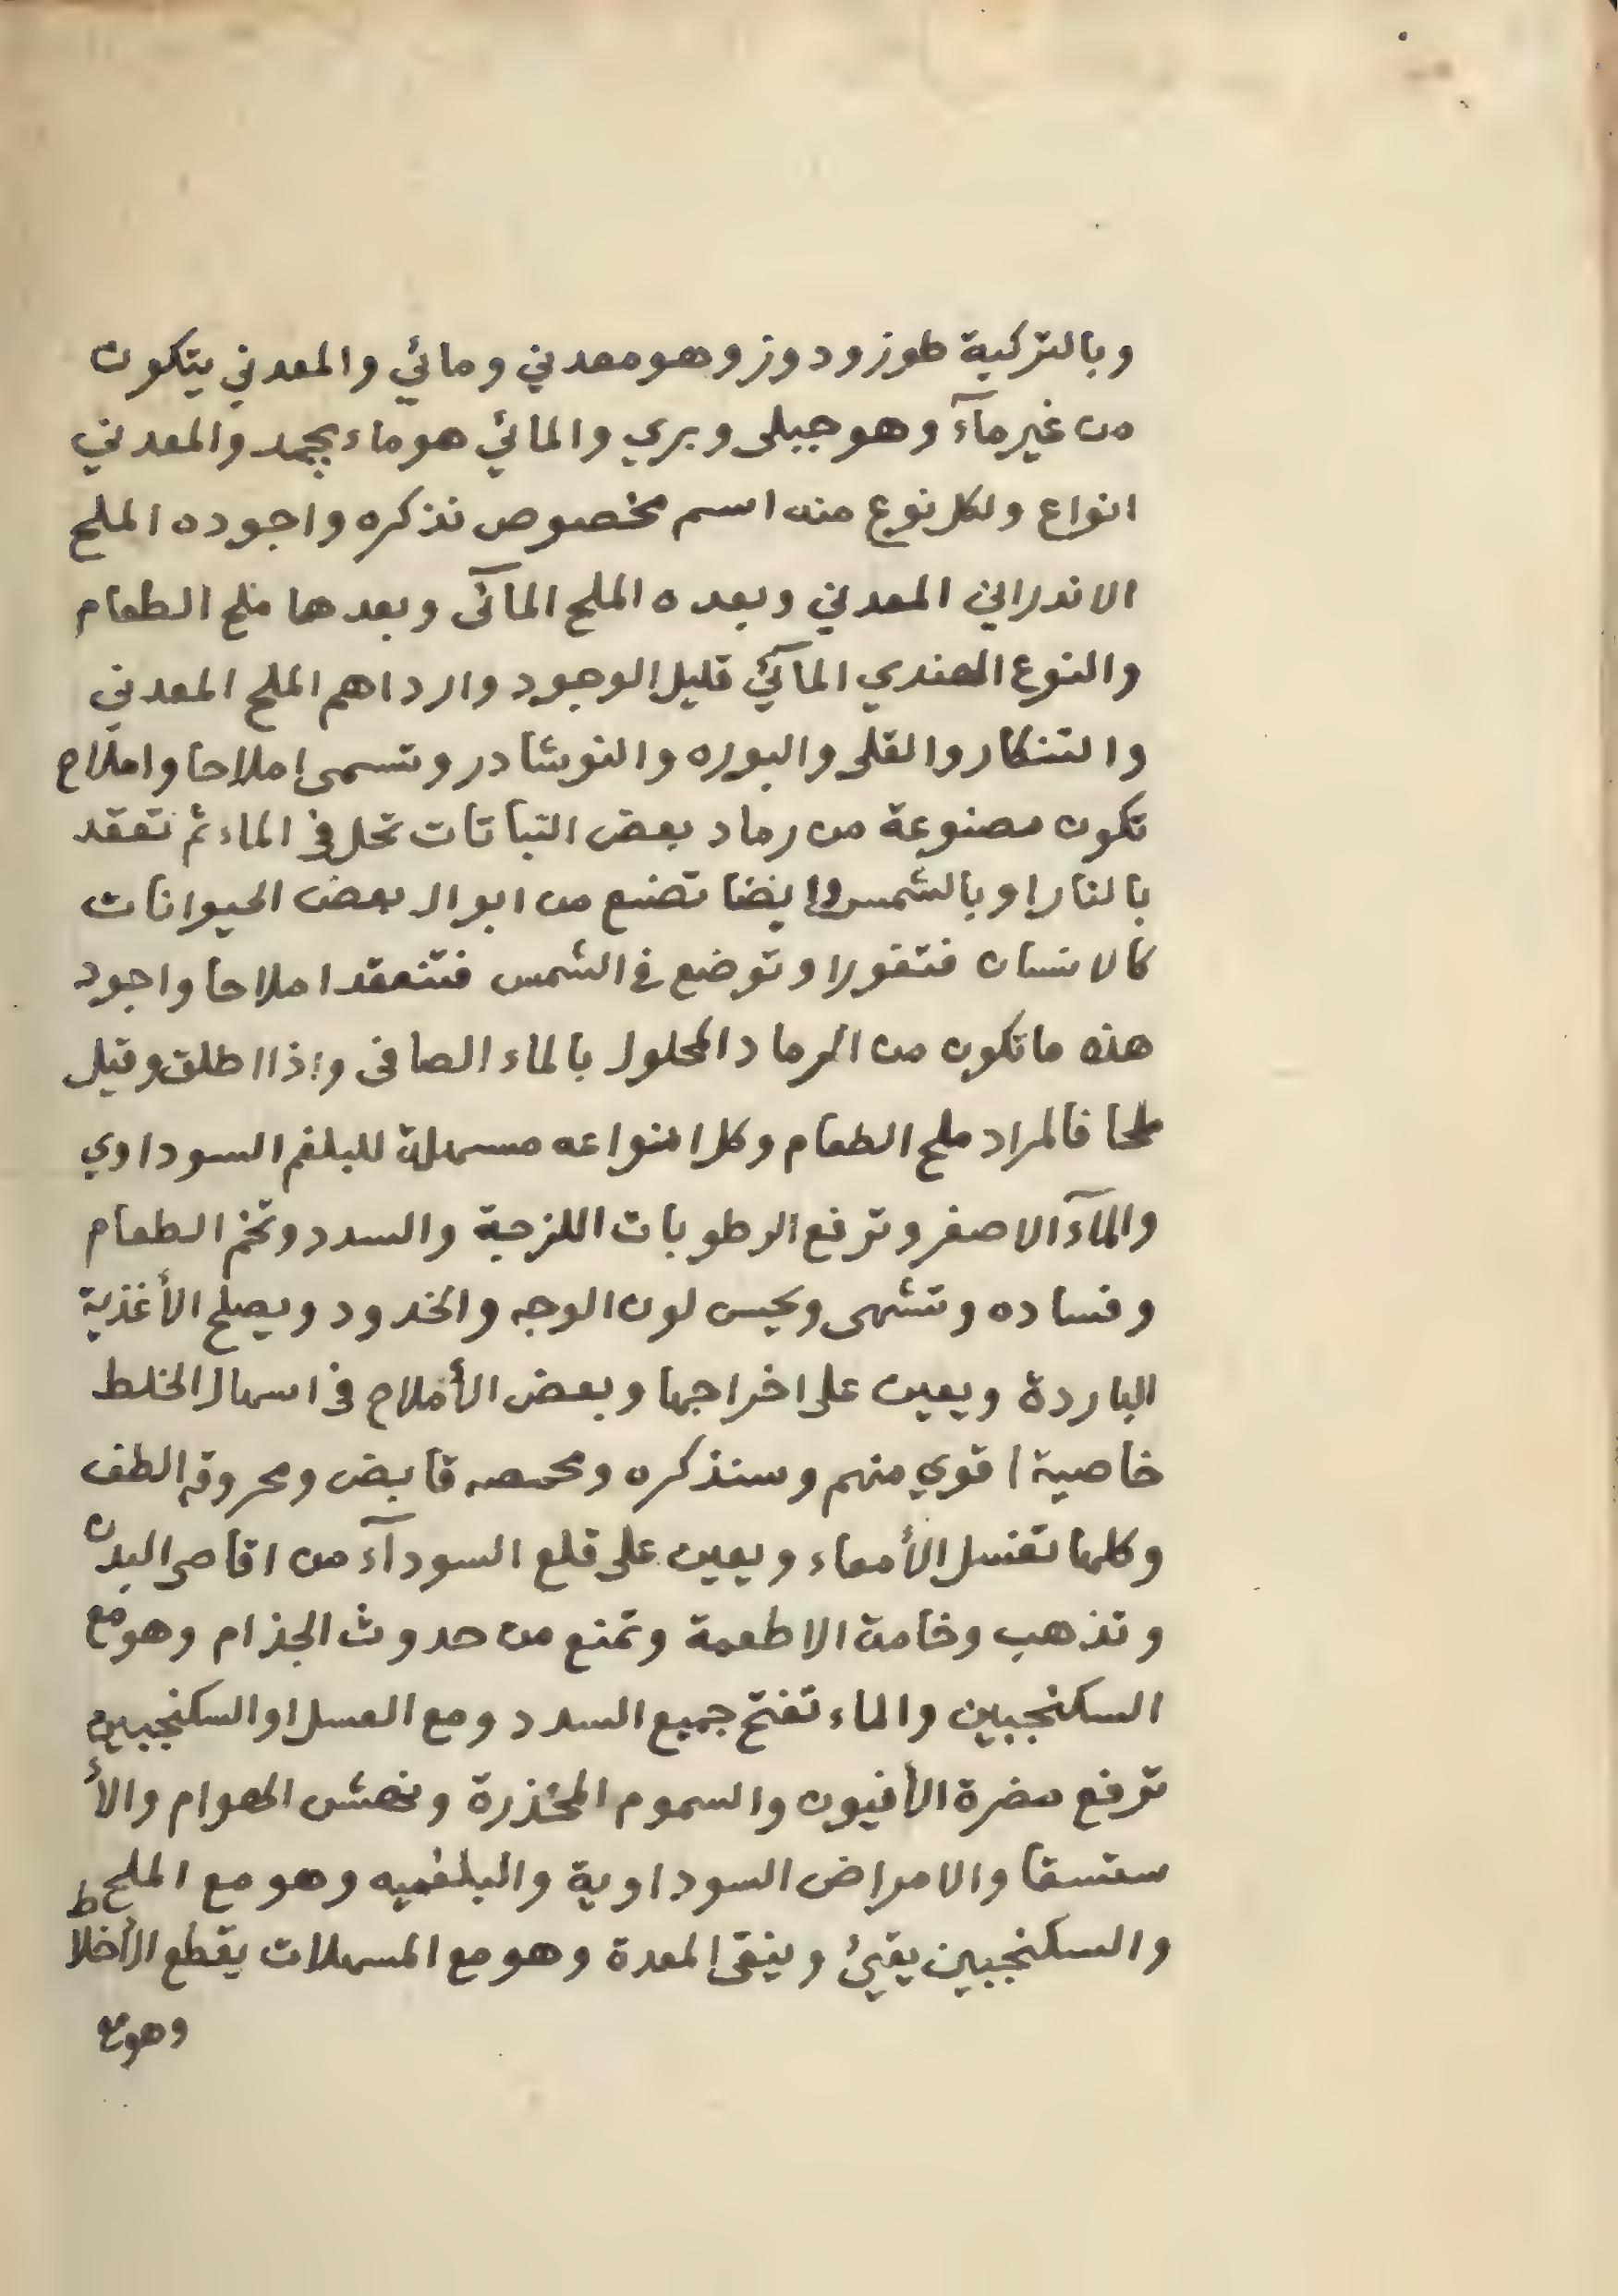 وبالتركية طوز ودوز وهو معدني ومائي والمعدني يتكون
من غير مآء وهو جبلى وبري والمائي هو ماء يجمد والمعدني
انواع ولكل نوع منه اسم مخصوص نذكره واجوده الملح
الاندراني المعدني وبعده الملح المائى وبعدها ملح الطعام
والنوع الهندي المائي قليل الوجود وارداهم الملح المعدني
والتنكار والقلى والبوره والنوشادر وتسمى املاحا واملاح
تكون مصنوعة من رماد بعض النباتات تحل في الماء ثم تعقد
بالنار او بالشمس وايضا تضنع من ابوال بعض الحيوانات
كالانسان فتفورا وتوضع في الشمس فتنعقد املاحا واجود
هذه ماتكون من الرماد المحلول بالماء الصافى وإذا اطلق وقيل
ملحا فالمراد ملح الطعام وكل انواعه مسهلة للبلغم السوداوي
والمآء الاصفر وترفع الرطوبات اللزجة والسدد وتخم الطعام
وفساده وتشهى ويحسن لون الوجه والخدود ويصلح الأغذية
الباردة ويعين على اخراجها وبعض الأملاح في اسهال الخلط
خاصية اقوي منهم وسنذكره ومحمصه قابض ومحروقه الطف
وكلها تغسل الأمعاء ويعين على قلع السودآء من اقاصى البدن
وتذهب وخامة الاطعمة وتمنع من حدوث الجذام وهو مع
السكنجبين والماء تفتح جميع السدد ومع العسل او السكنجبين
ترفع مضرة الأفيون والسموم المخذرة ونهش الهوام والأ
ستسقا والامراض السوداوية والبلغميه وهو مع الملح
والسكنجبين يقيئ وينقى المعدة وهو مع المسهلات يقطع الأخلاط
وهو مع